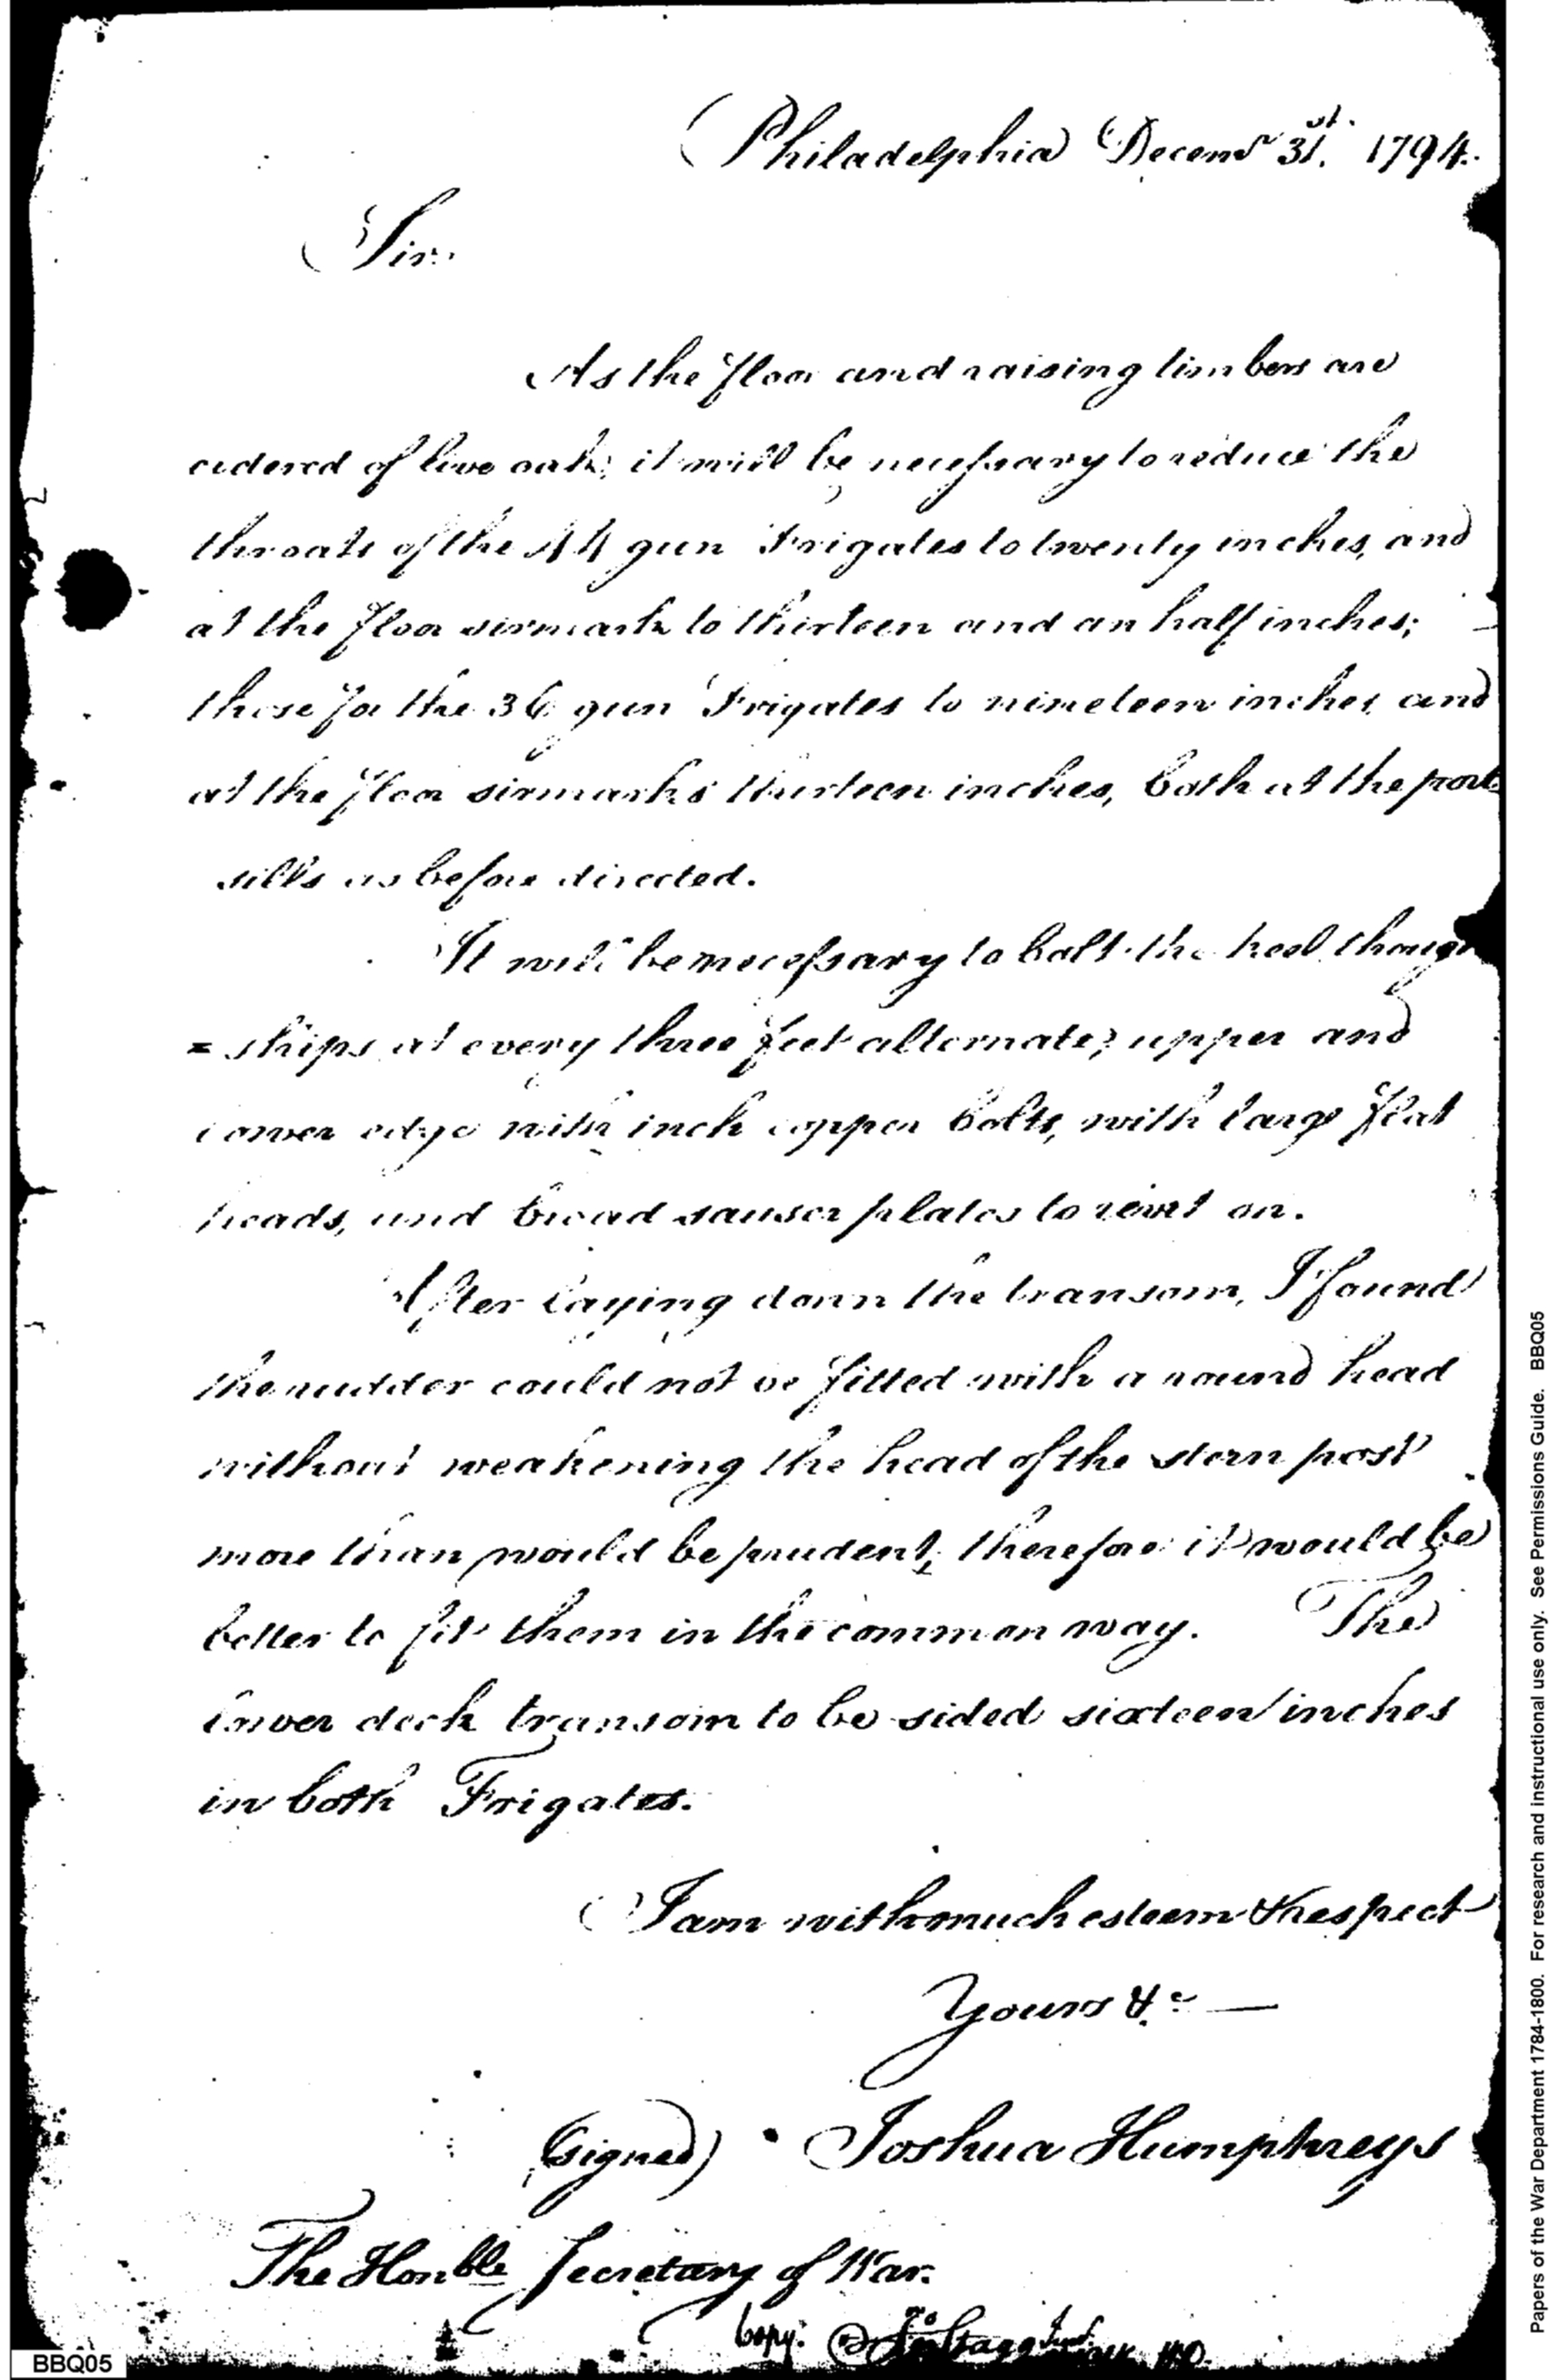 Philadelphia Decemr 31st. 1794.
Sir.
As the floor and raising timbers are
ordered of live oak, it will be necessary to reduce the
throats of the 44 gun Frigates to twenty inches, and
at the floor sirmark to thirteen and an half inches;
those for the 36 gun Frigates to nineteen inches and
at the floor sirmarks thirteen inches, both at the port
sills as before directed.
It will be necessary to bolt the keel
=ships at every three feet alternate, upper and
lower edge with inch copper bolts, with large flat
heads, and broad sauser plates to rivet on.
After laying down the transom, I found
the rudder could not be fitted with a round head
without weakening the head of the stern post
more than would be prudent, therefore it would be
better to fit them in the common way. The
lower deck transom to be sided sixteen inches
in both Frigates.
I am with much esteem & respect
Yours &c —
(signed) Joshua Humphreys
The Honble Secretary of War.
Copy:
BBQ05
Papers of the War Department 1784-1800. For research and instructional use only. See Permissions Guide. BBQ05